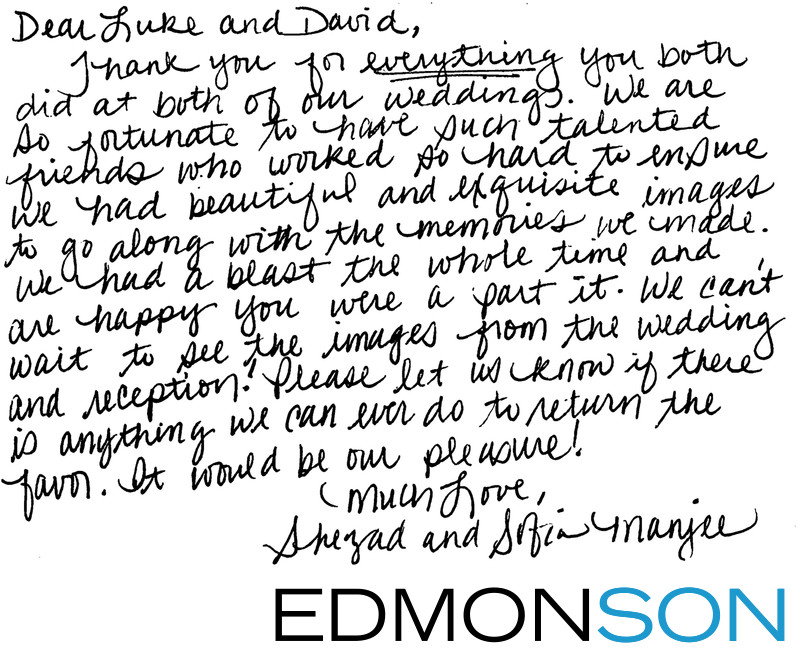 Dear Luke and David,
Thank you for everything you both
did at both of our weddings. We are
so fortunate to have such talented
friends who worked so hard to ensure
we had beautiful and exquisite images
to go along with the memories we made.
We had a blast the whole time and
are happy you were a part it. We can't
wait to see the images from the wedding
and reception! Please let us know if there
is anything we can ever do to return the
favor. It would be our pleasure!
Much Love,
Shezad and Sofia Manjee
EDMONSON